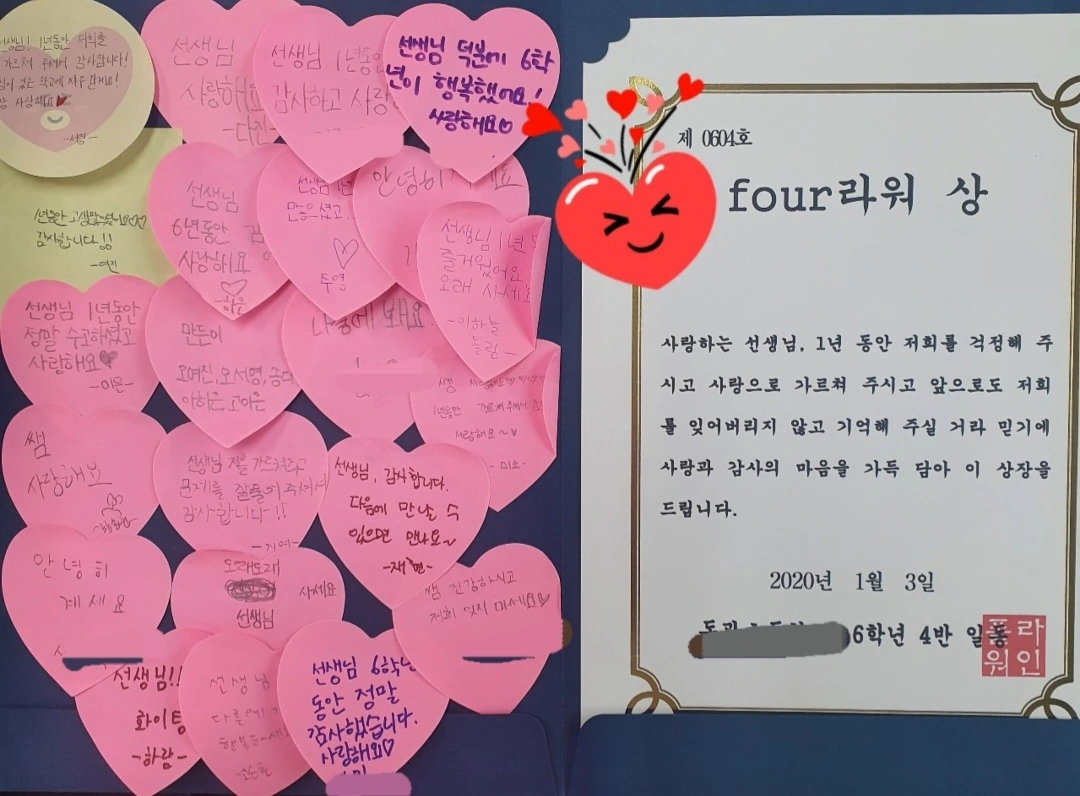 선생님, 1년동안 저희를
가르쳐 주셔서 감사합니다!
사랑해요
-서영-
선생님
사랑해요
-다진-
선생님 1년동안
감사하고 사랑
선생님 덕분에 6학
년이 행복했어요!
사랑해요♡
1년동안
감사합니다!!
-여진
선생님
6년동안 감
사랑해요
하은
선생님 1년
♡
주영
안녕히 요
선생님 1년
즐거웠어요
오래 사세요
-이하늘
올림-
선생님 1년동안
정말 수고하셨고
사랑해요♥
-이은-
만든이
오여진, 오서영, 송다
이하은, 고이은
나중에 봬요
1년동안 가르쳐 주셔서
사랑해요~♥
-미소-
쌤
사랑해요
선생님 저를 가르쳐주고
문제를 잘 주셔서
감사합니다!!
-지여-
선생님, 감사합니다.
다음에 만날 수
있으면 만나요~
-재현-
안녕히
계세요
오래오래
사세요
선생님
쌤 건강하시고
저희 잊지 마세요♡
선생님!!
화이팅
-하람-
선생님
행복하세요
선생님 6학년
동안 정말
감사했습니다.
사랑해요♡
제 0604호
four라워 상
사랑하는 선생님, 1년 동안 저희를 걱정해 주
시고 사랑으로 가르쳐 주시고 앞으로도 저희
를 잊어버리지 않고 기억해 주실 거라 믿기에
사랑과 감사의 마음을 가득 담아 이 상장을
드립니다.
2020년 1월 3일
6학년 4반 일동
플라
워인